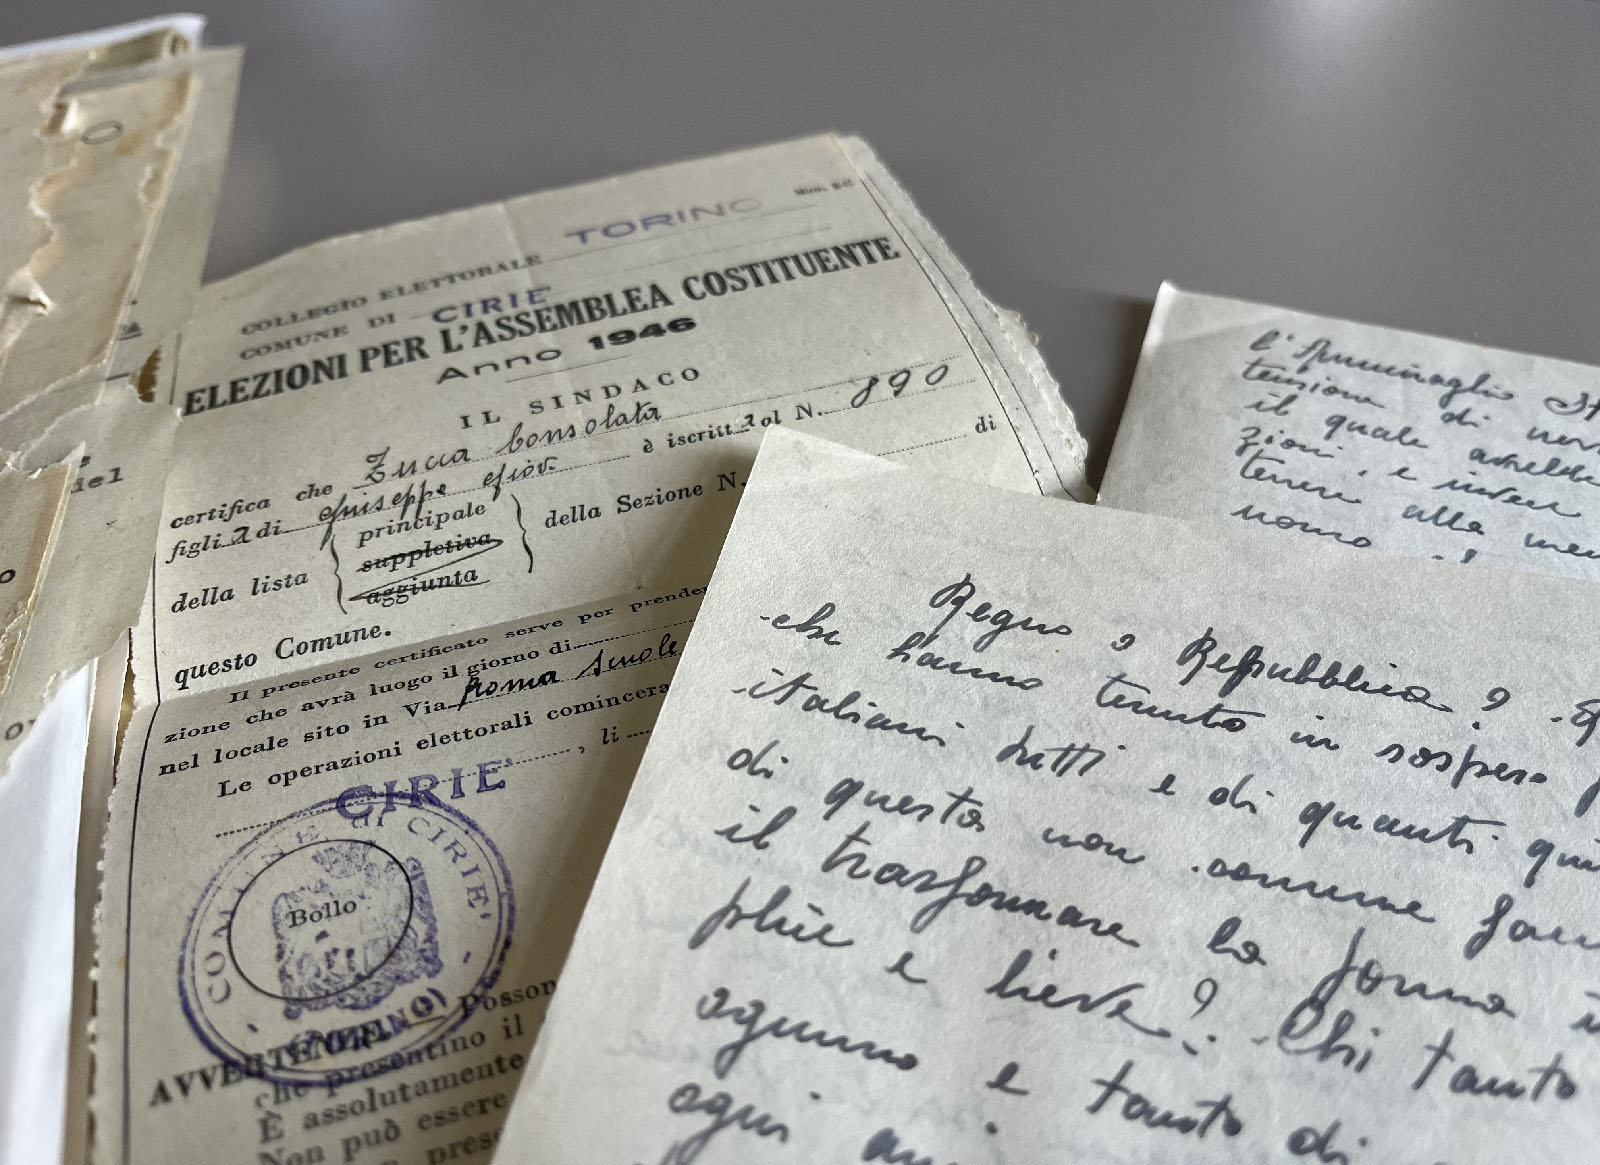 COLLEGIO ELETTORALE TORINO
COMUNE DI CIRIE
ELEZIONI PER L'ASSEMBLEA COSTITUENTE
Anno 1946
IL SINDACO
certifica che Zucca Consolata
figlia di Giuseppe Giov. è iscritta al N. 890
della lista principale suppletiva aggiunta della Sezione N. di
questo Comune.
Il presente certificato serve per prender
zione che avrà luogo il giorno di
nel locale sito in Via Roma Scuole
Le operazioni elettorali comincera
, li
CIRIE'
COMUNE di CIRIE'
Bollo
(TORINO)
AVVERTENZE. Posson
che presentino il
È assolutamente
Non può essere
pres
del
l'Ammiraglio
tensione di
il quale avrebbe
zioni, e invece
tenere alla
nomo
Regno o Repubblica?
che hanno tenuto in sospeso
italiani tutti e di quanti
di questa non comune
il trasformare la forma
plice e lieve? Chi tanto
ognuno e tanto di
ogni